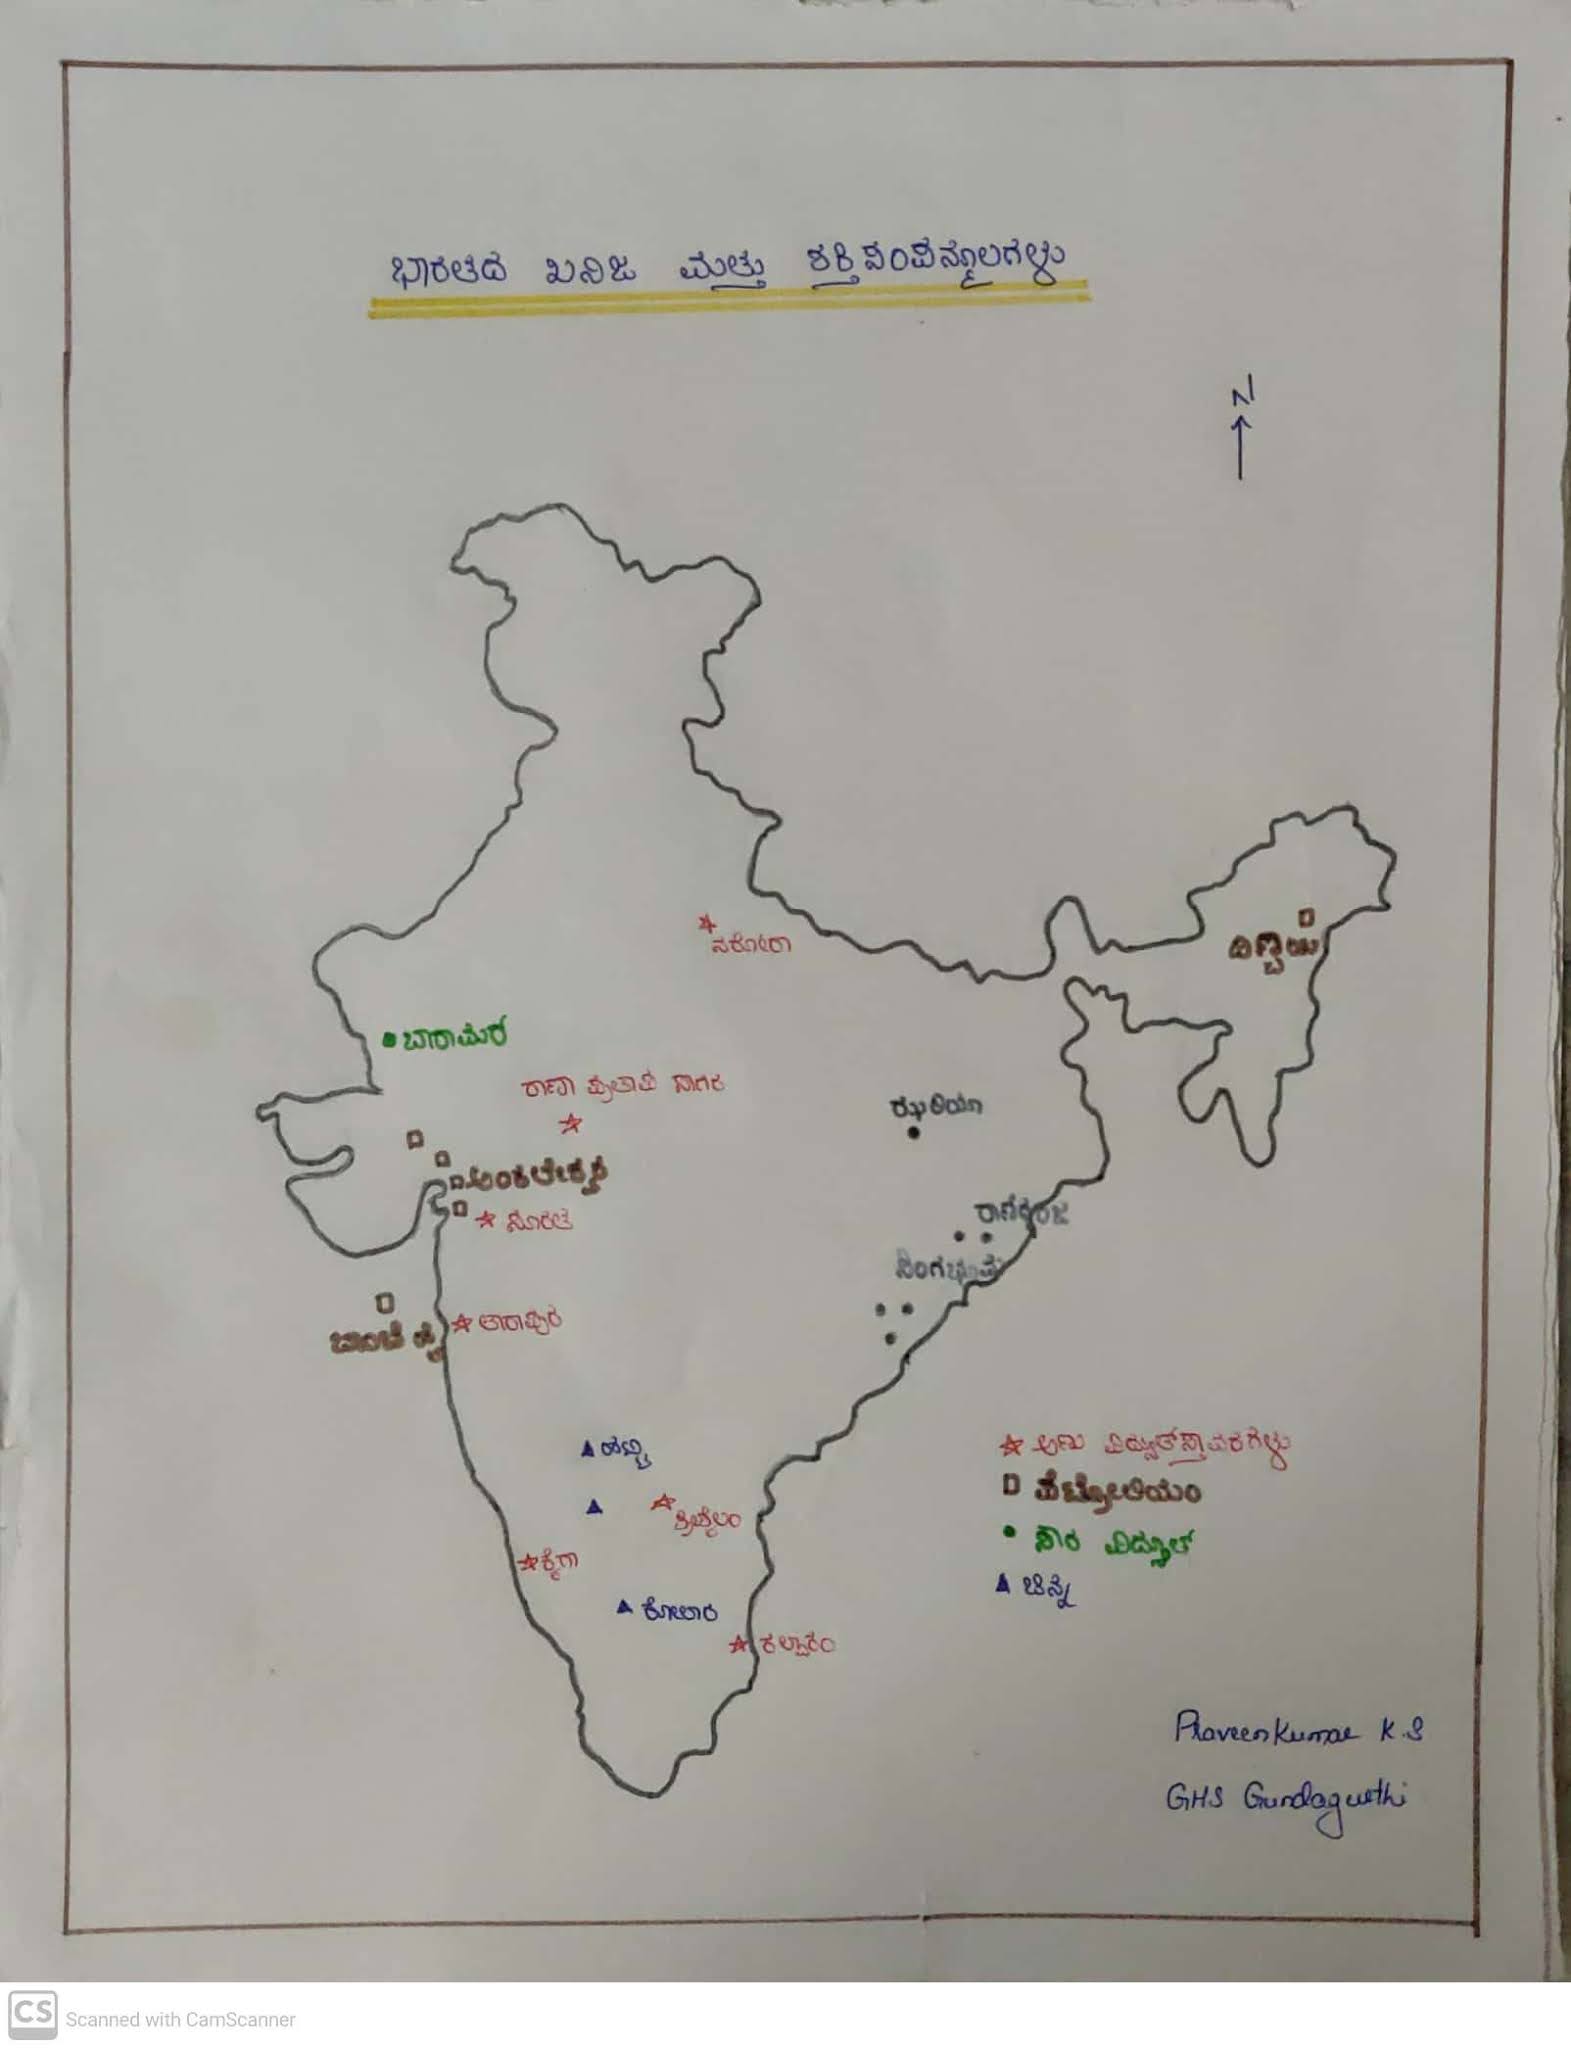 ಭಾರತದ ಖನಿಜ ಮತ್ತು ಶಕ್ತಿ ಸಂಪನ್ಮೂಲಗಳು
N
ನರೋರಾ
ದಿಗ್ಬಾಯಿ
ಬಾರಾಮರ
ರಾಣಾ ಪ್ರತಾಪ ಸಾಗರ
ಝರಿಯಾ
ಅಂಕಲೇಶ್ವರ
ಸೂರತ
ರಾಣಿಗಂಜ
ಸಿಂಗಭೂಮ
ತಾರಾಪುರ
ಬಾಂಬೆ ಹೈ
ಹಟ್ಟಿ
ಶ್ರೀಶೈಲಂ
ಕೈಗಾ
ಕೋಲಾರ
ಕಲ್ಪಾಕಂ
ಅಣು ವಿದ್ಯುತ್‌ಸ್ಥಾವರಗಳು
ಪೆಟ್ರೋಲಿಯಂ
ಸೌರ ವಿದ್ಯುತ್
ಚಿನ್ನ
Praveenkumar K.S
GHS Gundagurthi
CS Scanned with CamScanner